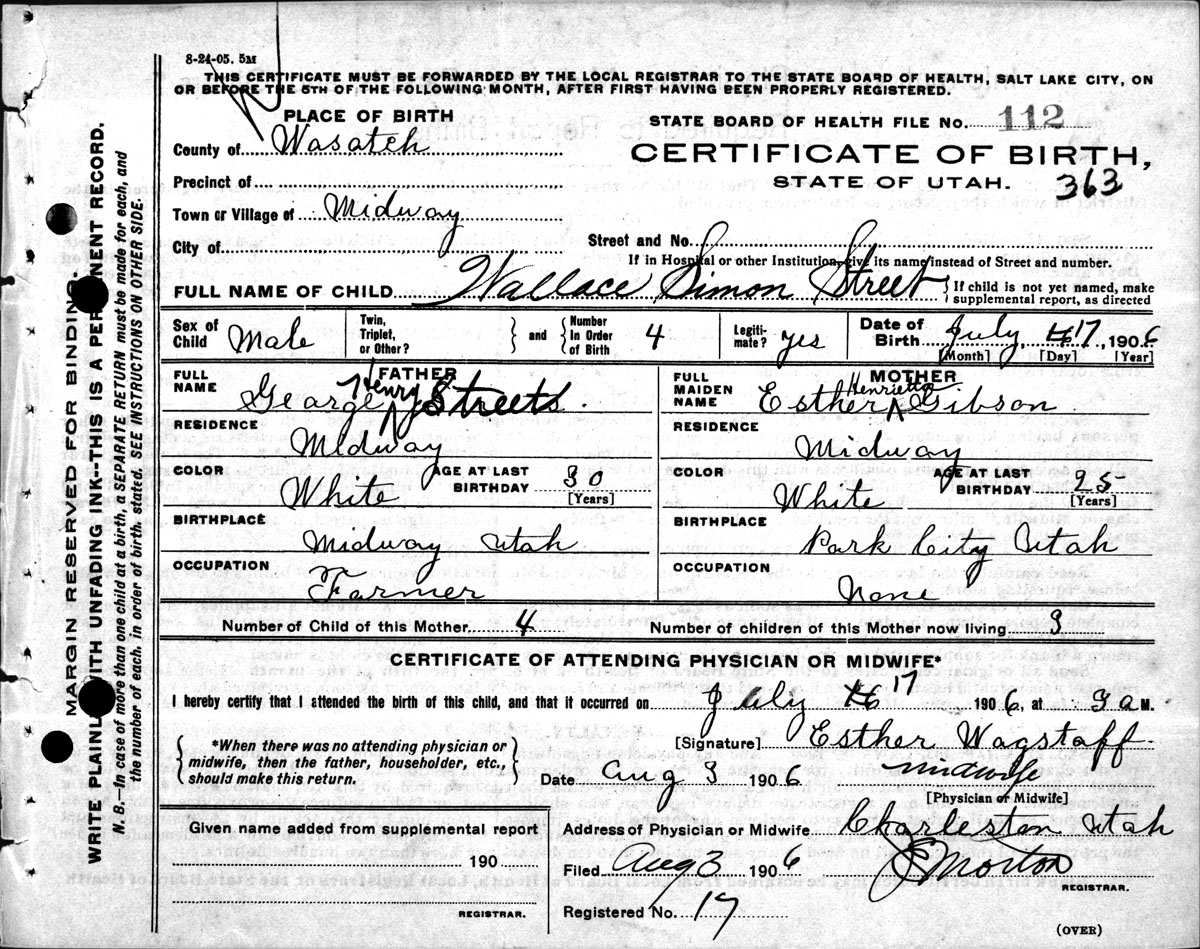 8-24-05. 5M
THIS CERTIFICATE MUST BE FORWARDED BY THE LOCAL REGISTRAR TO THE STATE BOARD OF HEALTH, SALT LAKE CITY, ON
OR BEFORE THE 5TH OF THE FOLLOWING MONTH, AFTER FIRST HAVING BEEN PROPERLY REGISTERED.
PLACE OF BIRTH
STATE BOARD OF HEALTH FILE No. 112
County of Wasatch
CERTIFICATE OF BIRTH,
Precinct of
STATE OF UTAH. 363
Town or Village of Midway
City of
Street and No.
If in Hospital or other Institution, give its name instead of Street and number.
FULL NAME OF CHILD Wallace Simon Street { If child is not yet named, make
supplemental report, as directed
Sex of Child Male
Twin, Triplet, or Other? } and { Number In Order of Birth 4
Legitimate? yes
Date of Birth July 17, 1906
[Month] [Day] [Year]
FATHER
FULL NAME George Henry Streets.
RESIDENCE
Midway
COLOR White
AGE AT LAST BIRTHDAY 30
[Years]
BIRTHPLACE
Midway Utah
OCCUPATION
Farmer
MOTHER
FULL MAIDEN NAME Esther Henrietta Gibson
RESIDENCE
Midway
COLOR White
AGE AT LAST BIRTHDAY 25
[Years]
BIRTHPLACE
Park City Utah
OCCUPATION
None
Number of Child of this Mother 4 Number of children of this Mother now living 3
CERTIFICATE OF ATTENDING PHYSICIAN OR MIDWIFE*
I hereby certify that I attended the birth of this child, and that it occurred on July 17 1906 at 3 a M.
{ *When there was no attending physician or
midwife, then the father, householder, etc.,
should make this return. }
[Signature] Esther Wagstaff
Date Aug 3 1906 midwife
[Physician or Midwife]
Given name added from supplemental report
190
REGISTRAR.
Address of Physician or Midwife Charleston Utah
Filed Aug 3 1906 Morton
REGISTRAR.
Registered No. 17
(OVER)
MARGIN RESERVED FOR BINDING.
WRITE PLAINLY WITH UNFADING INK--THIS IS A PERMANENT RECORD.
N. B.--In case of more than one child at a birth, a SEPARATE RETURN must be made for each, and
the number of each, in order of birth, stated. SEE INSTRUCTIONS ON OTHER SIDE.